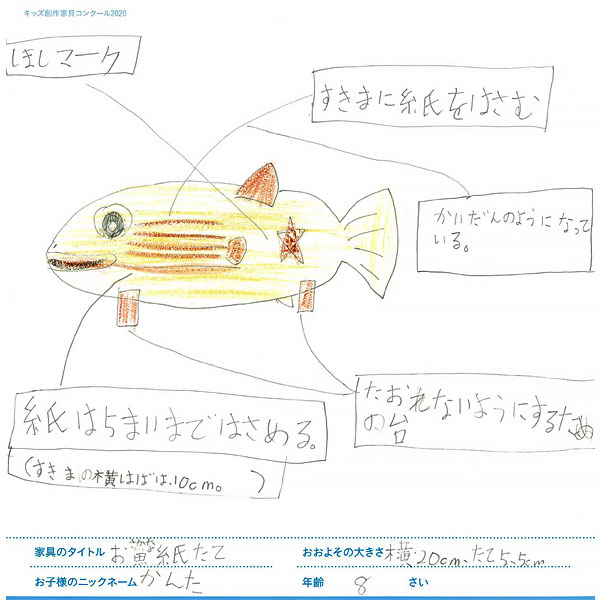 キッズ創作家具コンクール2020
ほしマーク
すきまに紙をはさむ
かいだんのようになって
いる。
たおれないようにするため
の台
紙は5まいまではさめる。
(すきまの横はばは、10cm。)
家具のタイトル お魚さかな紙たて
おおよその大きさ 横20cm、たて5.5cm
お子様のニックネーム かんた
年齢 8 さい